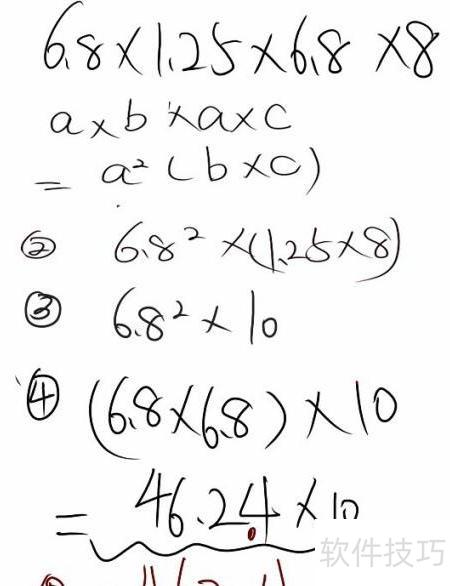 6.8×1.25×6.8×8
a×b×a×c
= a²(b×c)
② 6.8²×(1.25×8)
③ 6.8²×10
④ (6.8×6.8)×10
= 46.24×10
软件技巧